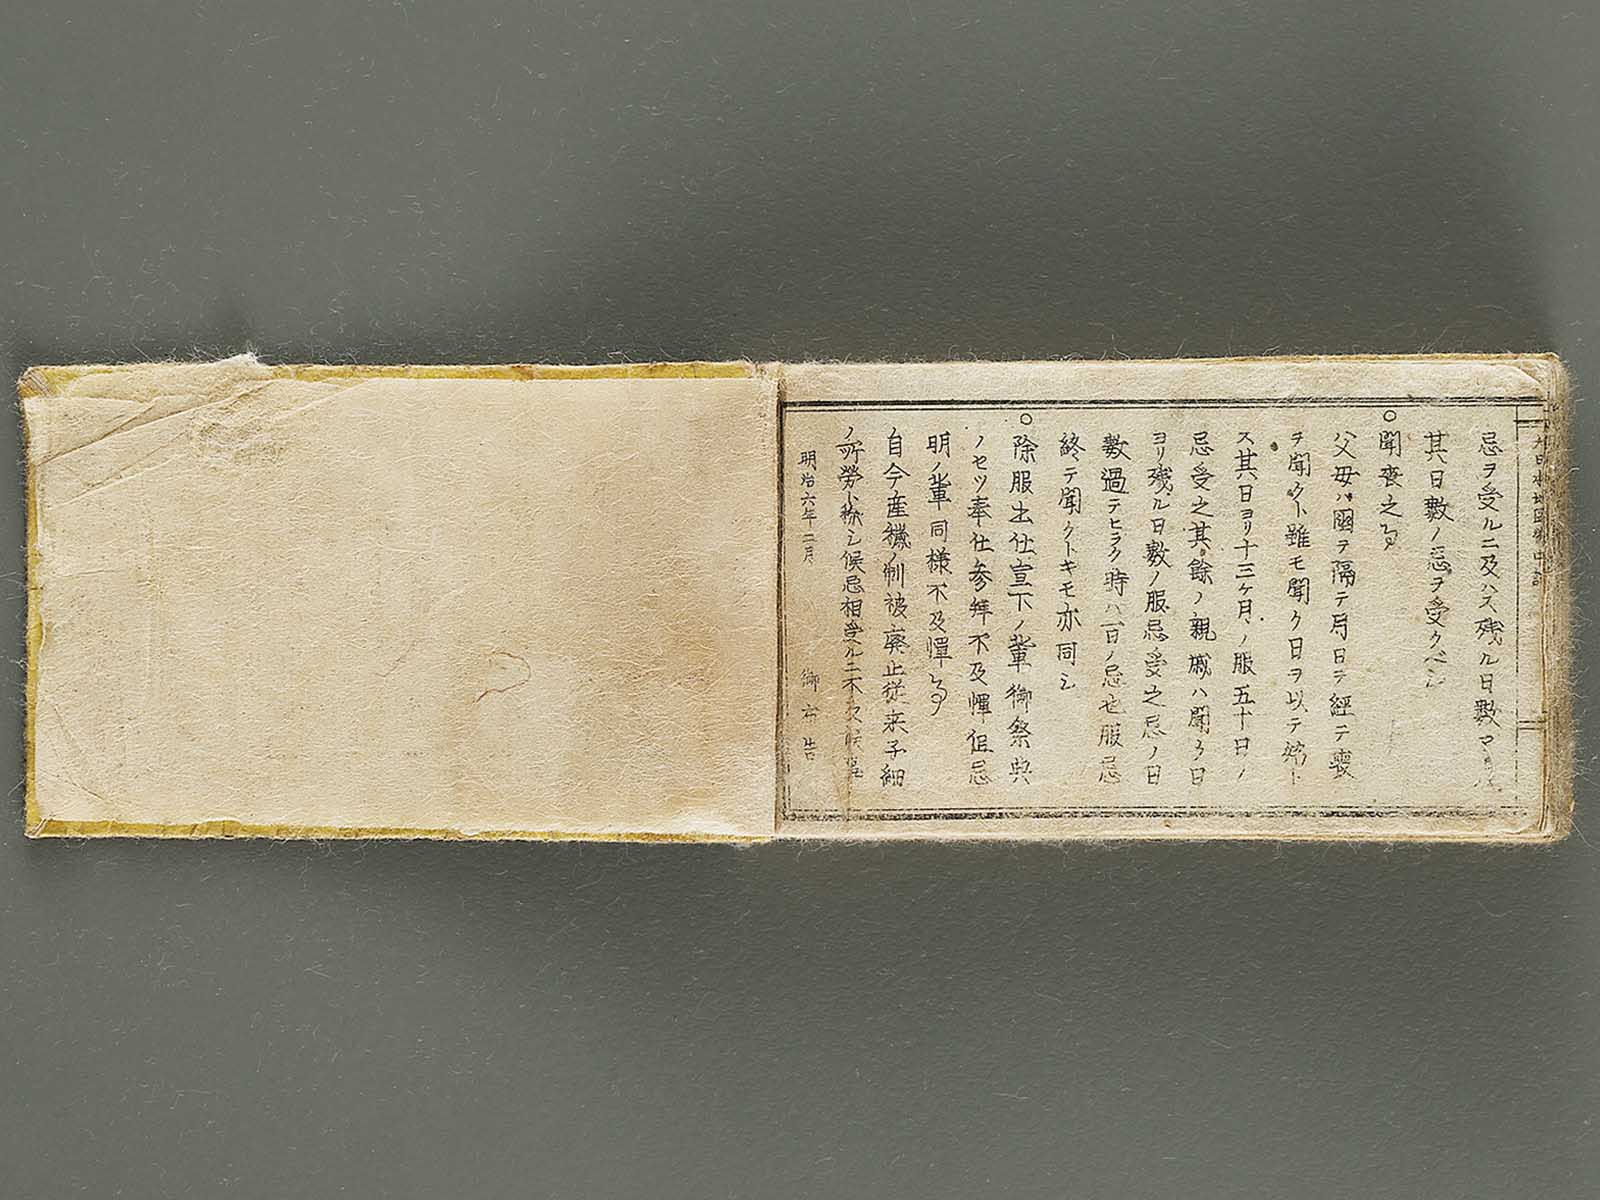 忌ヲ受ルニ及ハス残ル日数
其日数ノ忌ヲ受クベシ
○聞喪之事
父母ハ國テ隔テ月日テ經テ喪
ヲ聞クト雖モ聞ク日ヲ以テ始ト
ス其日ヨリ十三ケ月ノ服五十日ノ
忌受之其餘ノ親戚ハ聞ク日
ヨリ残ル日數ノ服忌受之忌ノ日
數過テヒラク時ハ一日ノ忌也服忌
終テ聞クトキモ亦同シ
○除服出仕宣下ノ輩御祭典
ノセツ奉仕参拜不及憚但忌
明ノ輩同様不及憚事
自今産穢ノ制被廃止従来子細
ノ所勞ト称シ候忌相受ルニ不
明治六年二月 御布告